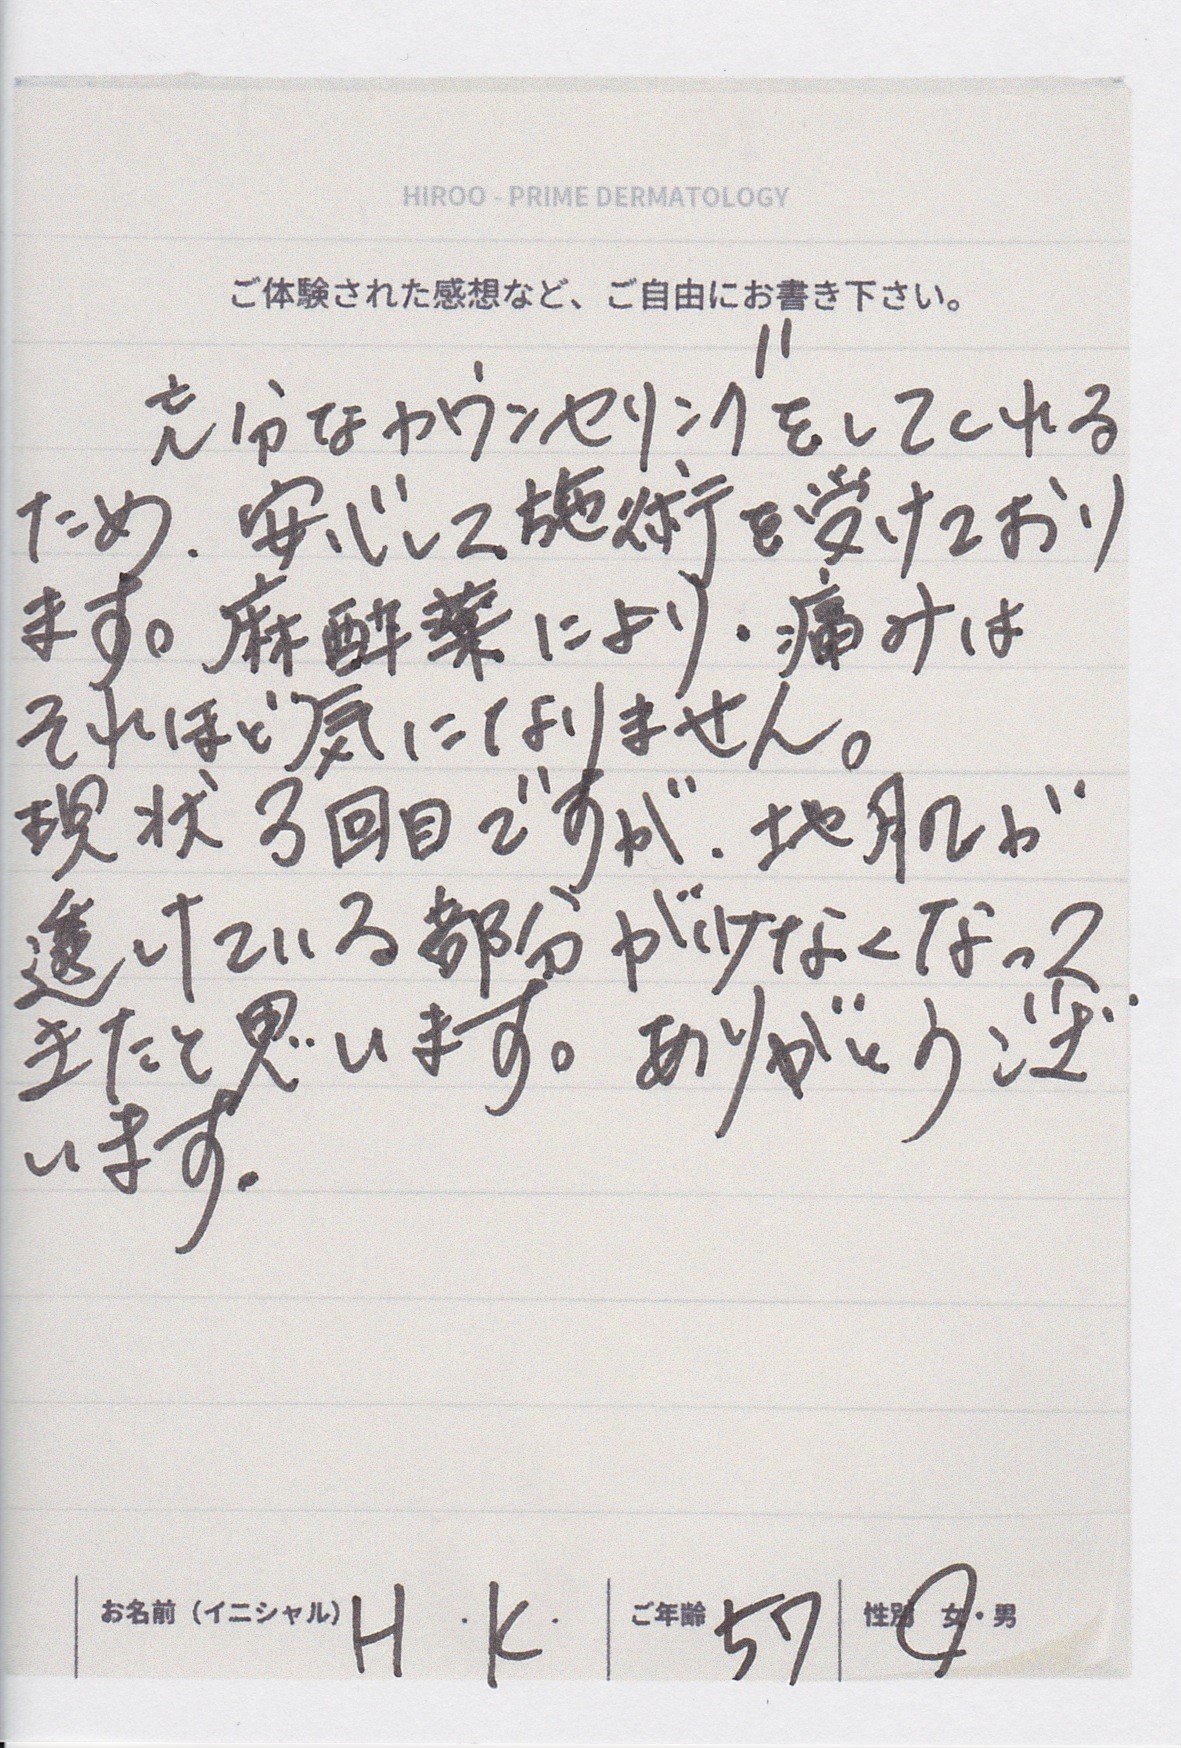 HIROO - PRIME DERMATOLOGY
ご体験された感想など、ご自由にお書き下さい。
充分なカウンセリングをしてくれる
ため、安心して施術を受けており
ます。麻酔薬により、痛みは
それほど気になりません。
現状3回目ですが、地肌が
透けている部分が少なくなって
きたと思います。ありがとうござ
います。
お名前（イニシャル） H.K. ご年齢 57 性別 女・男